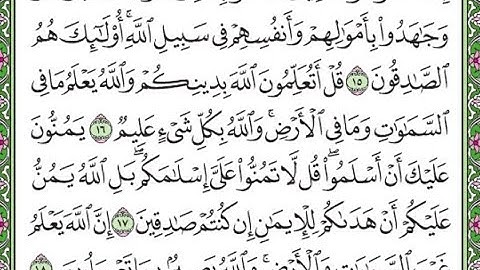 وَجَٰهَدُوا۟ بِأَمْوَٰلِهِمْ وَأَنفُسِهِمْ فِى سَبِيلِ ٱللَّهِ ۚ أُو۟لَٰٓئِكَ هُمُ
ٱلصَّٰدِقُونَ ١٥ قُلْ أَتُعَلِّمُونَ ٱللَّهَ بِدِينِكُمْ وَٱللَّهُ يَعْلَمُ مَا فِى
ٱلسَّمَٰوَٰتِ وَمَا فِى ٱلْأَرْضِ ۚ وَٱللَّهُ بِكُلِّ شَىْءٍ عَلِيمٌ ١٦ يَمُنُّونَ
عَلَيْكَ أَنْ أَسْلَمُوا۟ ۖ قُل لَّا تَمُنُّوا۟ عَلَىَّ إِسْلَٰمَكُم ۖ بَلِ ٱللَّهُ يَمُنُّ
عَلَيْكُمْ أَنْ هَدَىٰكُمْ لِلْإِيمَٰنِ إِن كُنتُمْ صَٰدِقِينَ ١٧ إِنَّ ٱللَّهَ يَعْلَمُ
غَيْبَ ٱلسَّمَٰوَٰتِ وَٱلْأَرْضِ ۚ وَٱللَّهُ بَصِيرٌۢ بِمَا تَعْمَلُونَ ١٨